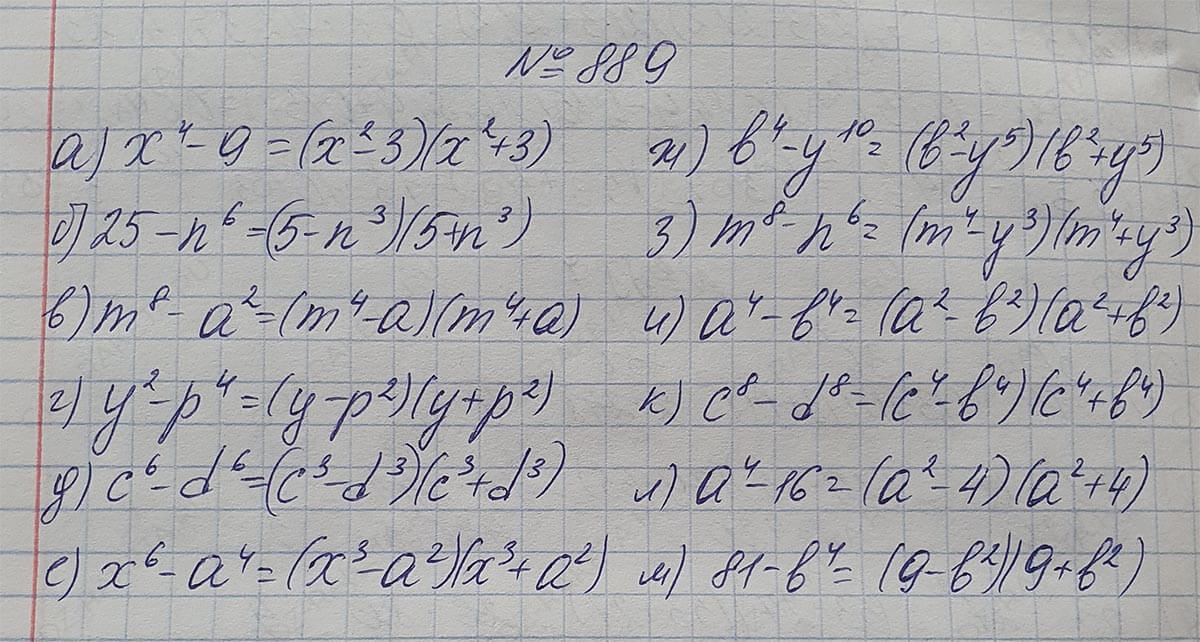 № 889
а) x⁴ - 9 = (x² - 3)(x² + 3)
б) 25 - n⁶ = (5 - n³)(5 + n³)
в) m⁸ - a² = (m⁴ - a)(m⁴ + a)
г) y² - p⁴ = (y - p²)(y + p²)
д) c⁶ - d⁶ = (c³ - d³)(c³ + d³)
е) x⁶ - a⁴ = (x³ - a²)(x³ + a²)
ж) b⁴ - y¹⁰ = (b² - y⁵)(b² + y⁵)
з) m⁸ - n⁶ = (m⁴ - y³)(m⁴ + y³)
и) a⁴ - b⁴ = (a² - b²)(a² + b²)
к) c⁸ - d⁸ = (c⁴ - b⁴)(c⁴ + b⁴)
л) a⁴ - 16 = (a² - 4)(a² + 4)
м) 81 - b⁴ = (9 - b²)(9 + b²)